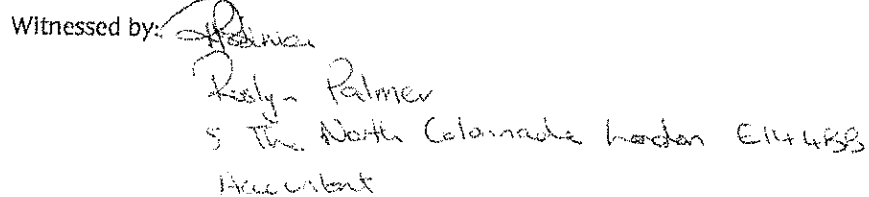 Witnessed by:
Palmer
5 The North Colonnade London E14 4BB
Accountant